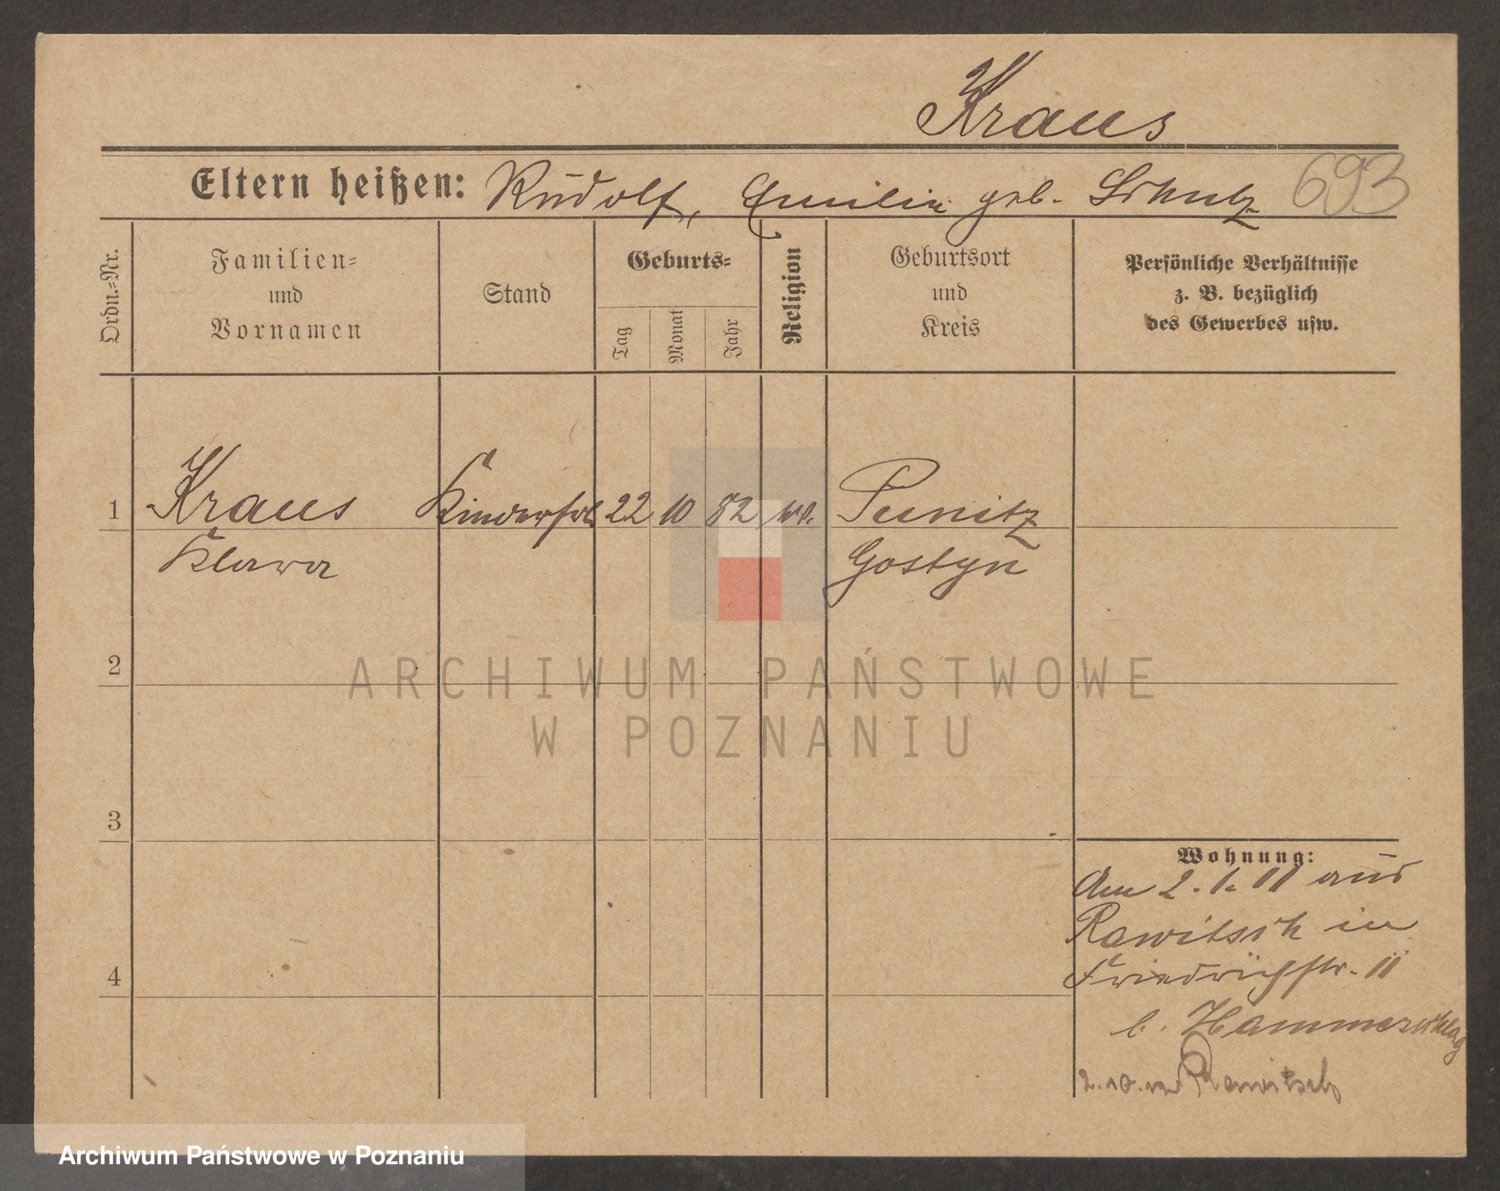 Kraus
Eltern heißen: Rudolf, Emilie geb. Schulz 693
Ordn.=Nr.
Familien=
und
Vornamen
Stand
Geburts=
Tag
Monat
Jahr
Religion
Geburtsort
und
Kreis
Persönliche Verhältnisse
z. B. bezüglich
des Gewerbes usw.
1 Kraus Kinderfrl 22 10 82 Punitz
Klara Gostyn
2
3
4
Wohnung:
Am 2. 1. 11 aus
Rawitsch in
Friedrichstr. 11
b. Hammerschlag
2. 10. Rawitsch
ARCHIWUM PAŃSTWOWE
W POZNANIU
Archiwum Państwowe w Poznaniu